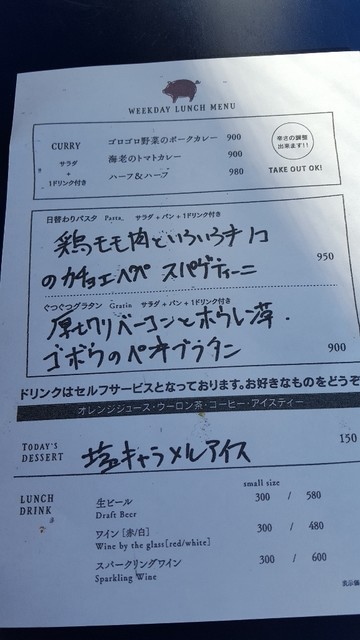 WEEKDAY LUNCH MENU
CURRY
サラダ
+
1ドリンク付き
ゴロゴロ野菜のポークカレー 900
海老のトマトカレー 900
ハーフ&ハーフ 980
辛さの調整
出来ます!!
TAKE OUT OK!
日替わりパスタ Pasta. サラダ+パン+1ドリンク付き
鶏モモ肉といろいろキノコ
のカチョエペペ スパゲティーニ 950
ぐつぐつグラタン Gratin サラダ+パン+1ドリンク付き
厚切りベーコンとホウレン草.
ゴボウのペンネグラタン 900
ドリンクはセルフサービスとなっております。お好きなものをどうぞ
オレンジジュース・ウーロン茶・コーヒー・アイスティー
TODAY'S
DESSERT
塩キャラメルアイス 150
LUNCH
DRINK
small size
生ビール 300 / 580
Draft Beer
ワイン [赤/白] 300 / 480
Wine by the glass[red/white]
スパークリングワイン 300 / 600
Sparkling Wine
表示価